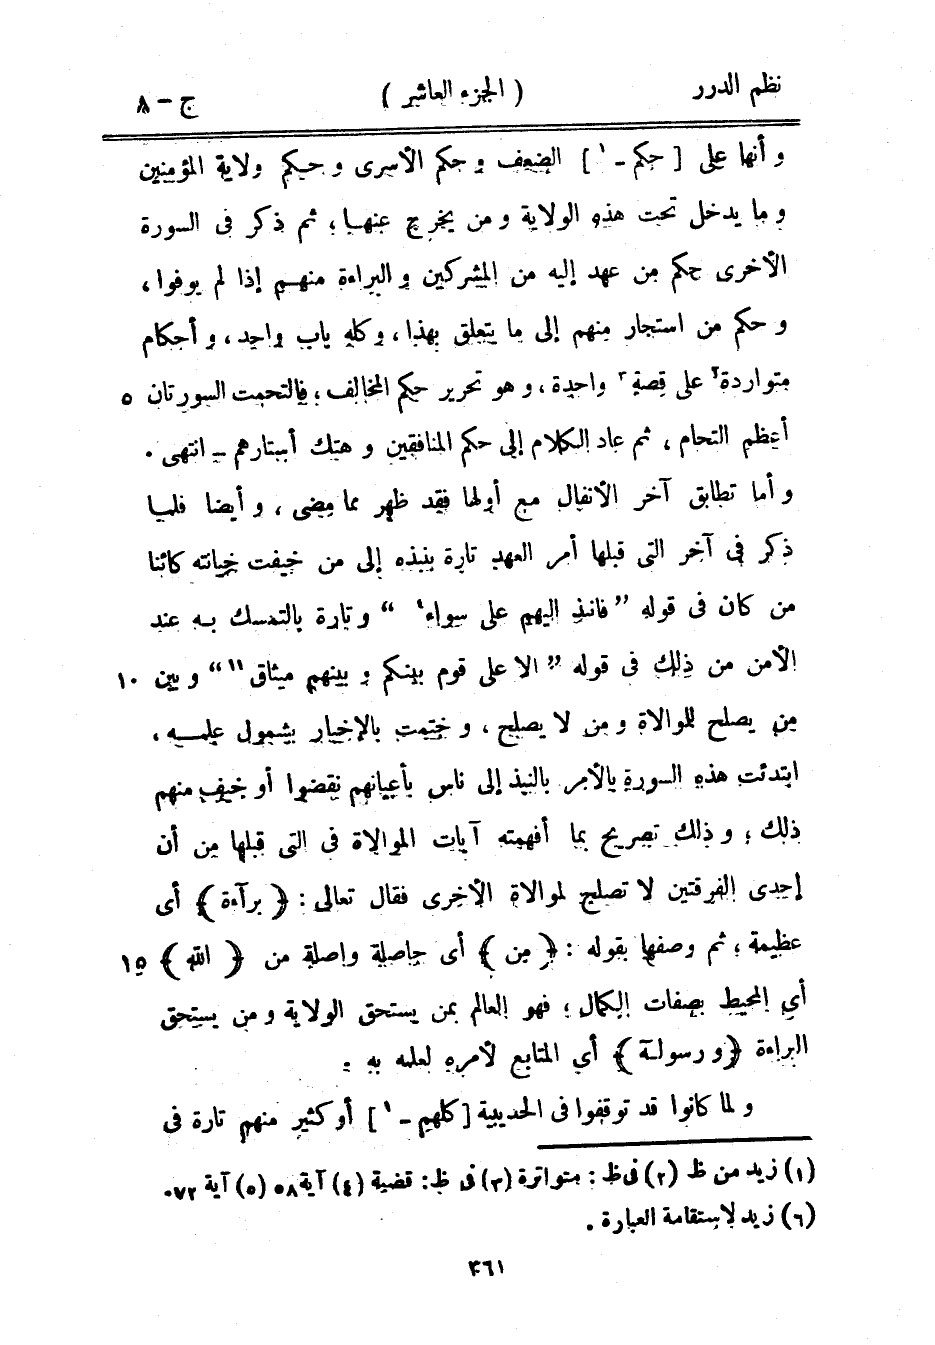 نظم الدرر ( الجزء العاشر ) ج – ٨
و أنها على [ حكم – ١ ] الضعف و حكم الأسرى و حكم ولاية المؤمنين
و ما يدخل تحت هذه الولاية و من يخرج عنها ؛ ثم ذكر فى السورة
الأخرى حكم من عهد إليه من المشركين و البراءة منهم إذا لم يوفوا ،
و حكم من استجار منهم إلى ما يتعلق بهذا ، و كله باب واحد ، و أحكام
متواردة٢ على قصة٣ واحدة ، و هو تحرير حكم المخالف ؛ فالتحمت السورتان ٥
أعظم التحام ، ثم عاد الكلام إلى حكم المنافقين و هتك أستارهم – انتهى .
و أما تطابق آخر الأنفال مع أولها فقد ظهر مما مضى ، و أيضا فلما
ذكر فى آخر التى قبلها أمر العهد تارة بنبذه إلى من خيفت خيانته كائنا
من كان فى قوله ” فانبذ اليهم على سواء٤ “ و تارة بالتمسك به عند
الأمن من ذلك فى قوله ” الا على قوم بينكم و بينهم ميثاق “ و بين ١٠
من يصلح للموالاة و من لا يصلح ، و ختمت بالإخبار بشمول علمه ،
ابتدئت هذه السورة بالأمر بالنبذ إلى ناس بأعيانهم نقضوا أو خيف منهم
ذلك ؛ و ذلك تصريح بما أفهمته آيات الموالاة فى التى قبلها من أن
إحدى الفرقتين لا تصلح لموالاة الأخرى فقال تعالى : ﴿ برآءة ﴾ أى
عظيمة ؛ ثم وصفها بقوله : ﴿ من ﴾ أى حاصلة واصلة من ﴿ الله ﴾ ١٥
أي المحيط بصفات الكمال ؛ فهو العالم بمن يستحق الولاية و من يستحق
البراءة ﴿ و رسوله ﴾ أي المتابع لأمره لعلمه به .
و لما كانوا قد توقفوا فى الحديبية [ كلهم – ٦ ] أو كثير منهم تارة فى
(١) زيد من ظ (٢) فى ظ : متواترة (٣) فى ظ : قضية (٤) آية ٥٨ (٥) آية ٧٢ .
(٦) زيد لاستقامة العبارة .
٣٦١